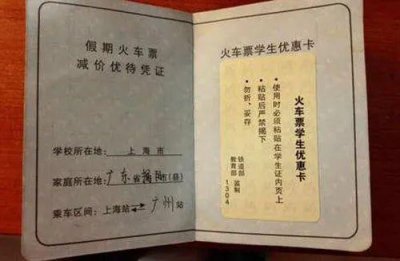 假期火车票
减价优待凭证
学校所在地: 上海市
家庭所在地: 广东省揭阳市(县)
乘车区间: 上海站⟷广州站
火车票学生优惠卡
火车票学生优惠卡
• 使用时必须粘贴在学生证内页上
• 粘贴后严禁揭下
• 勿折、妥存
铁道部
教育部 监制
1304